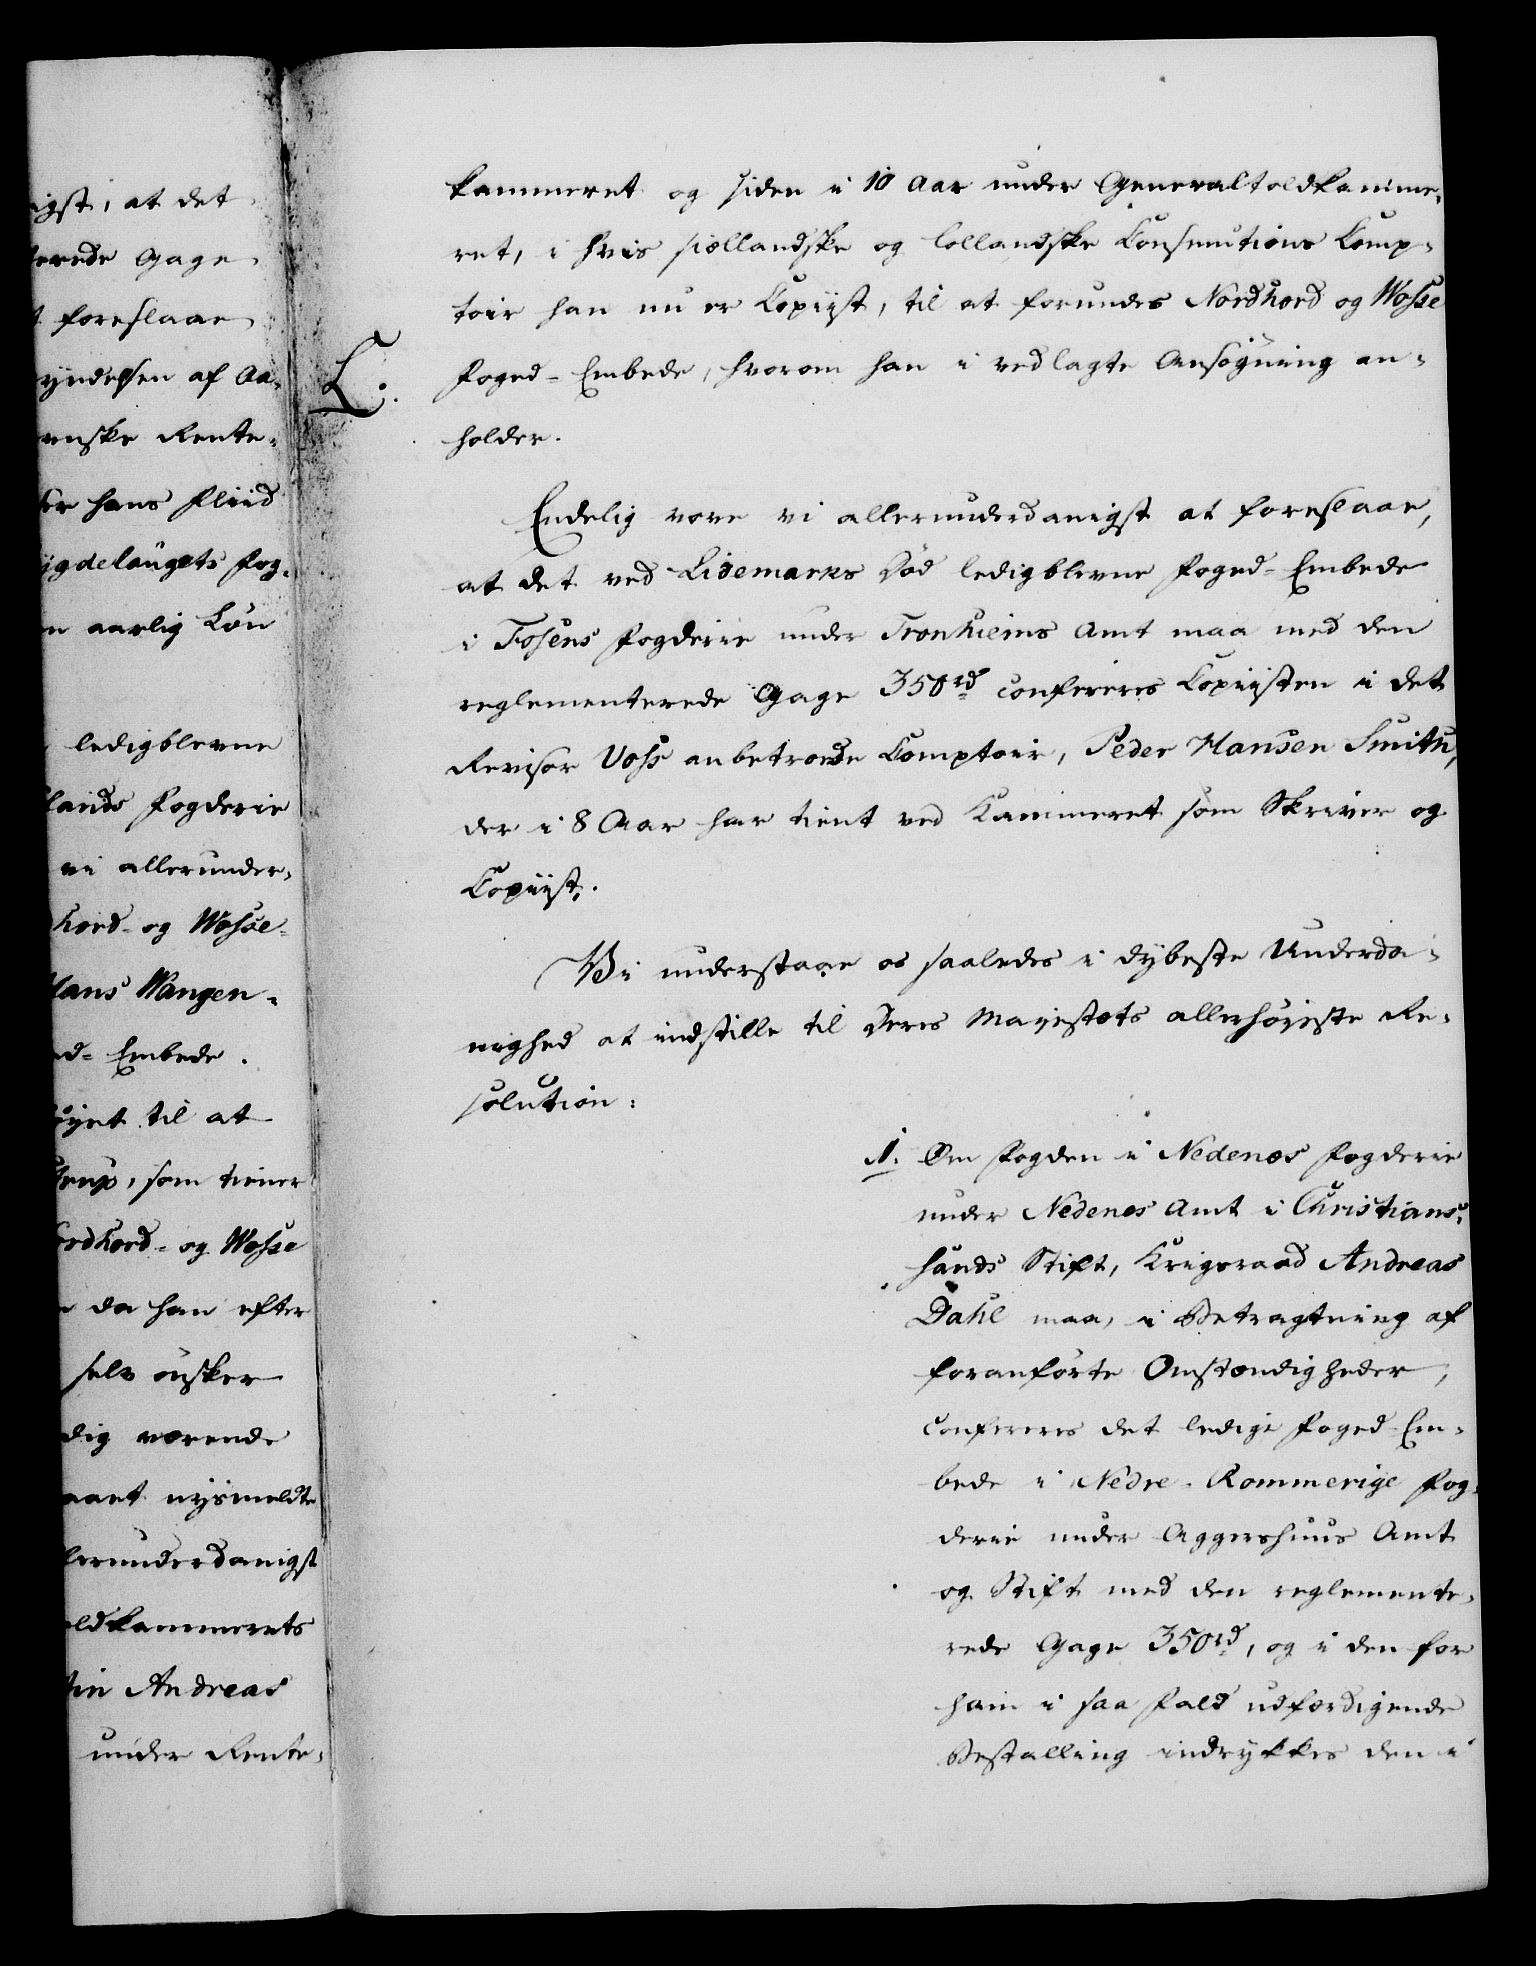 igst, at det
terede Gage
t foreslaae
yndelsen af Aa-
enske Rente-
er hans Fliid
ygdelaugets Fog-
en aarlig Løn
ledigblevne
lands Fogderie
vi allerunder-
hord- og Wosse-
Hans Wangen-
ed-Embede.
øyet til at
trup, som tiener
ordhord- og Wosse
da han efter
selv ønsker
dig værende
aaet nysmeldte
lerunderdanigst
oldkammerets
tin Andreas
under Rente-
kammeret og siden i 10 Aar under Generaltoldkamme-
ret, i hvis siællandske og lollandske Consumtions Comp-
toir han nu er Copiist, til at forundes Nordhord og Wosse
L. Foged-Embede, hvorom han i vedlagte Ansøgning an-
holder.
Endelig vove vi allerunderdanigst at foreslaae,
at det ved Lidemarks Død ledigblevne Foged-Embede
i Fosens Fogderie under Tronhiems Amt maa med den
reglementerede Gage 350 rd confereres Copiisten i det
Revisor Voss anbetroede Comptoir, Peder Hansen Smith,
der i 8 Aar har tient ved Kammeret som Skriver og
Copiist.
Vi understaae os saaledes i dybeste Underda-
nighed at indstille til Deres Majestæts allerhøjeste Re-
solution:
1. Om Fogden i Nedenæs Fogderie
under Nedenes Amt i Christians-
sands Stift, Krigsraad Andreas
Dahl maa, i Betragtning af
foranførte Omstændigheder,
confereres det ledige Foged-Em-
bede i Nedre-Rommerige Fog-
derie under Aggershuus Amt
og Stift med den reglemente-
rede Gage 350 rd, og i den for
ham i saa Fald udfærdigende
Bestalling indrykkes den i